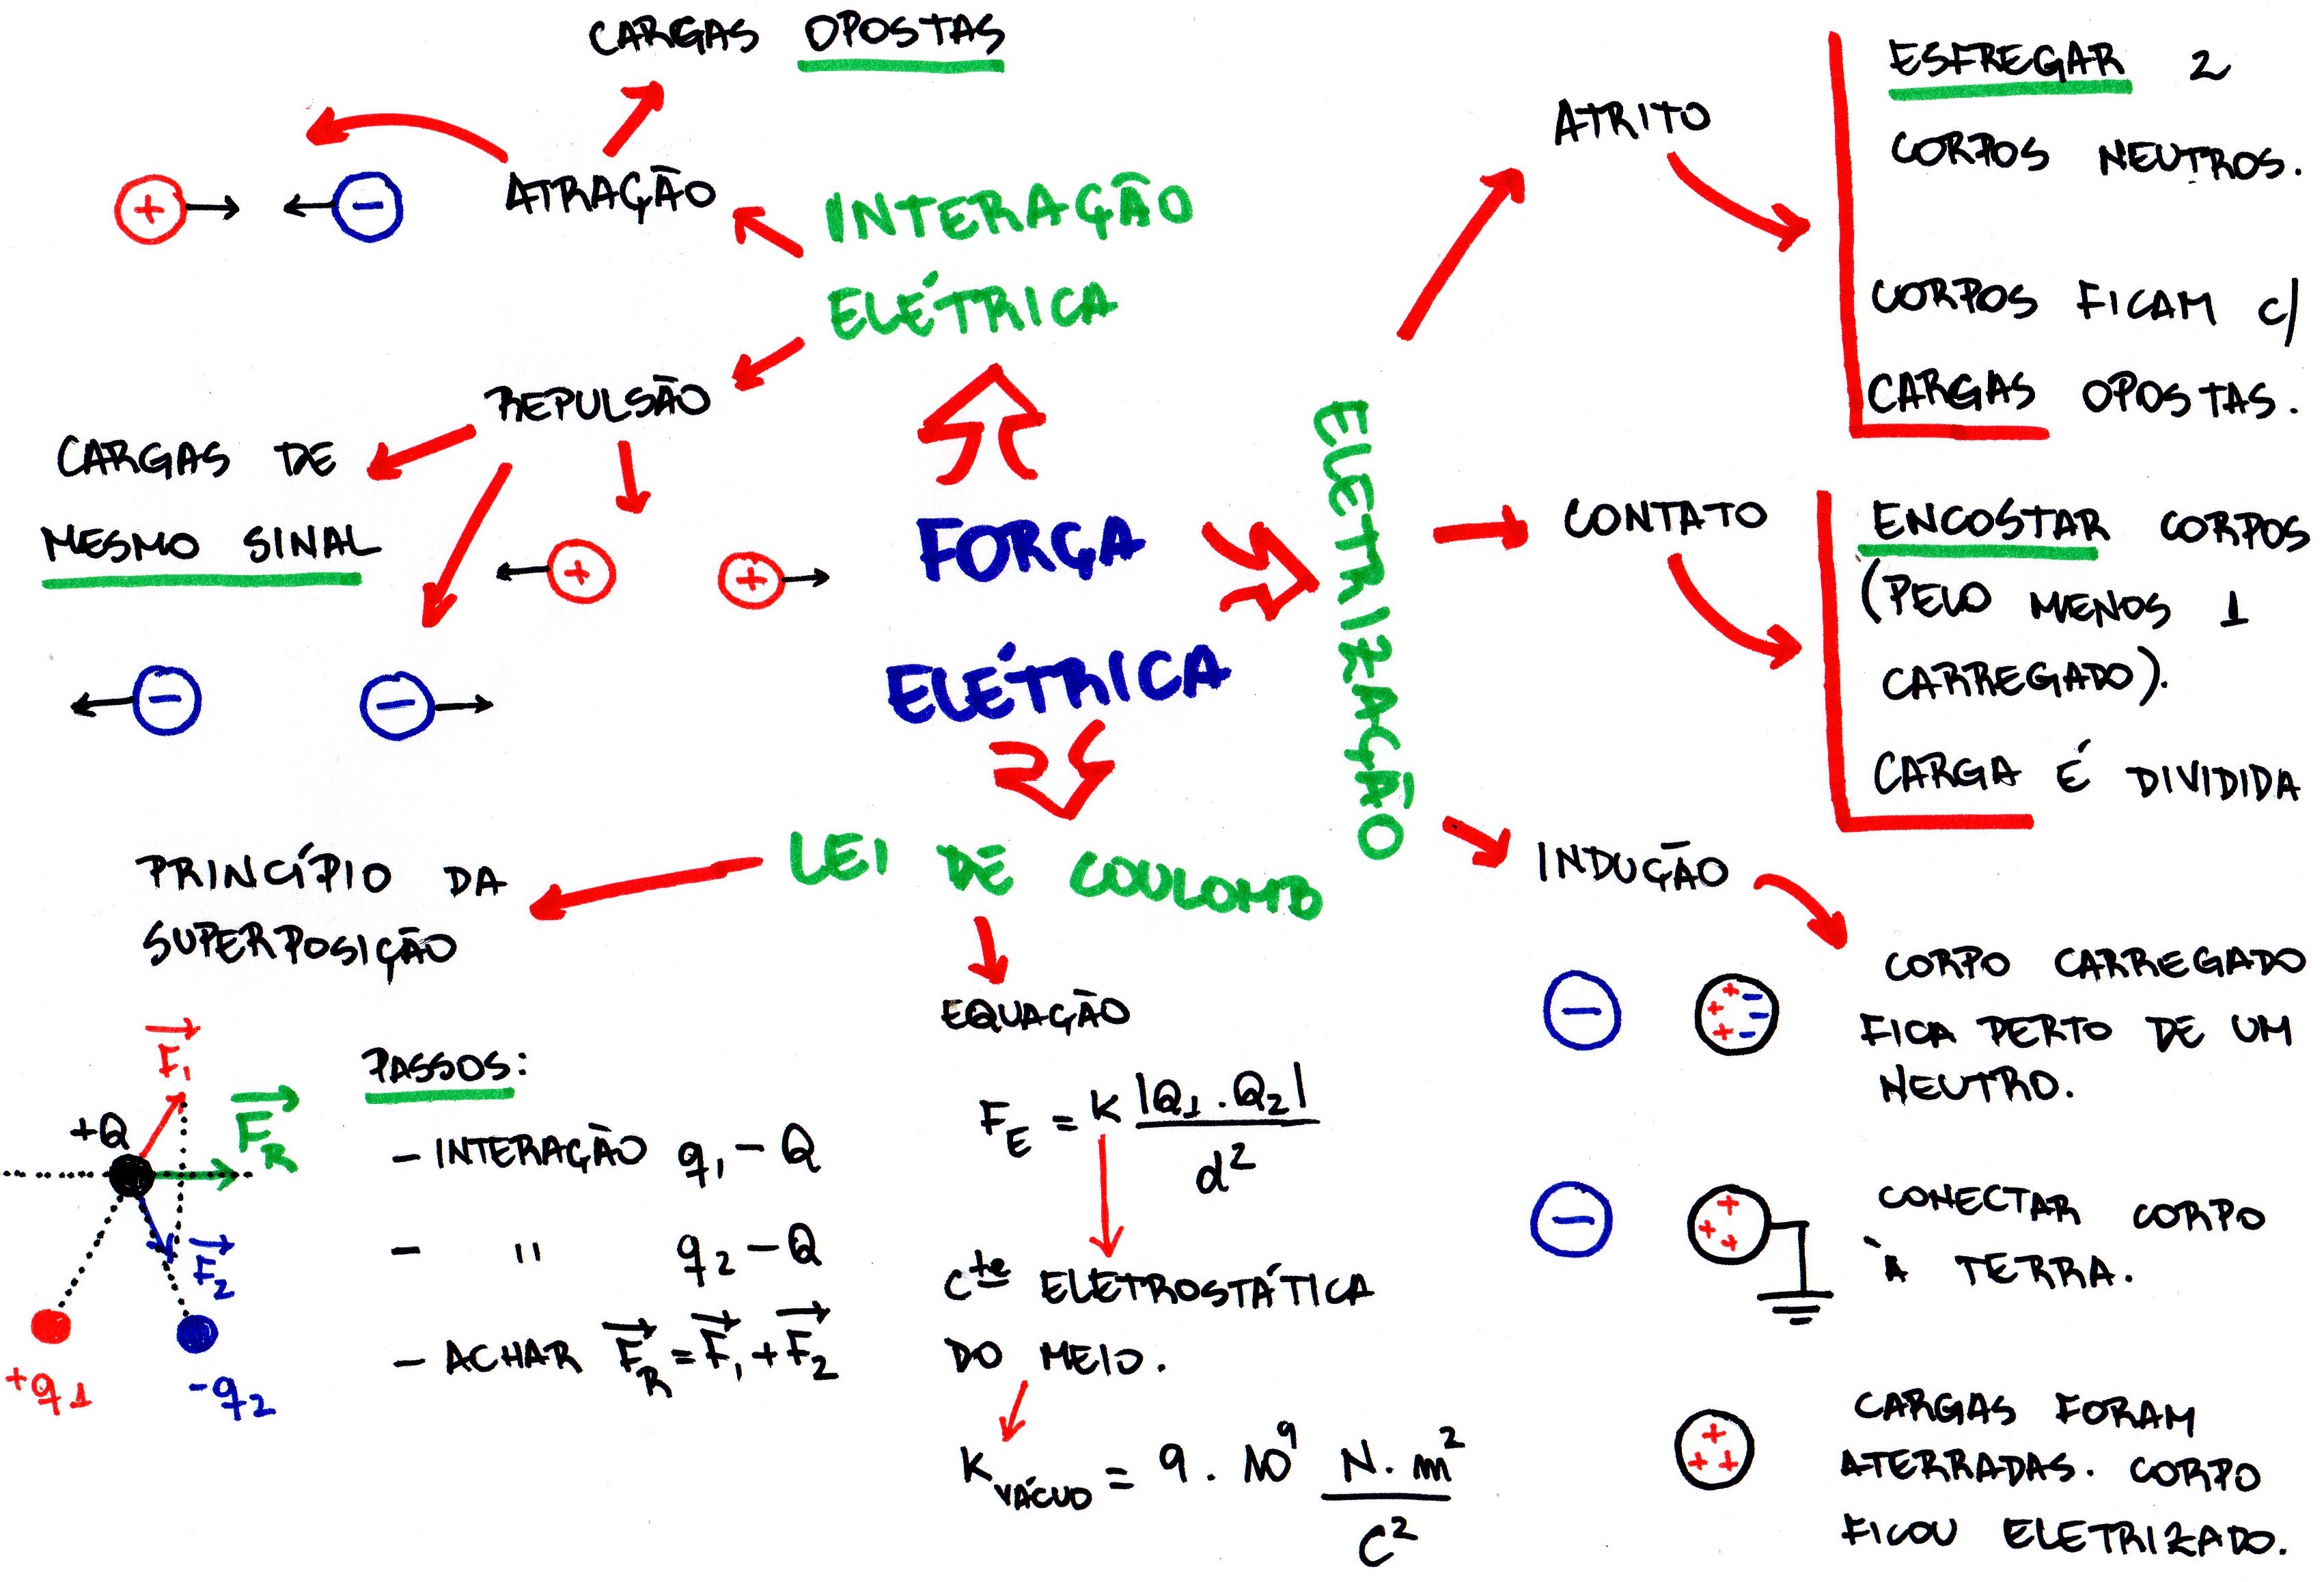 CARGAS OPOSTAS
ATRAÇÃO
+
−
INTERAÇÃO
ELÉTRICA
REPULSÃO
CARGAS DE
MESMO SINAL
+ +
− −
FORÇA
ELÉTRICA
ELETRIZAÇÃO
ATRITO
ESFREGAR 2
CORPOS NEUTROS.
CORPOS FICAM C/
CARGAS OPOSTAS.
CONTATO
ENCOSTAR CORPOS
(PELO MENOS 1
CARREGADO).
CARGA É DIVIDIDA
INDUÇÃO
CORPO CARREGADO
FICA PERTO DE UM
NEUTRO.
−
+ −
+ −
+ −
CONECTAR CORPO
À TERRA.
−
+
+ +
CARGAS FORAM
ATERRADAS. CORPO
FICOU ELETRIZADO.
+
+ +
LEI DE COULOMB
PRINCÍPIO DA
SUPERPOSIÇÃO
F₁
+Q
F_R
F₂
+q1
-q2
PASSOS:
- INTERAÇÃO q₁ - Q
- " q₂ - Q
- ACHAR F_R = F₁ + F₂
EQUAÇÃO
F_E = K |Q₁ . Q₂|
d²
Cte ELETROSTÁTICA
DO MEIO.
K VÁCUO = 9 . 10⁹ N. m²
C²